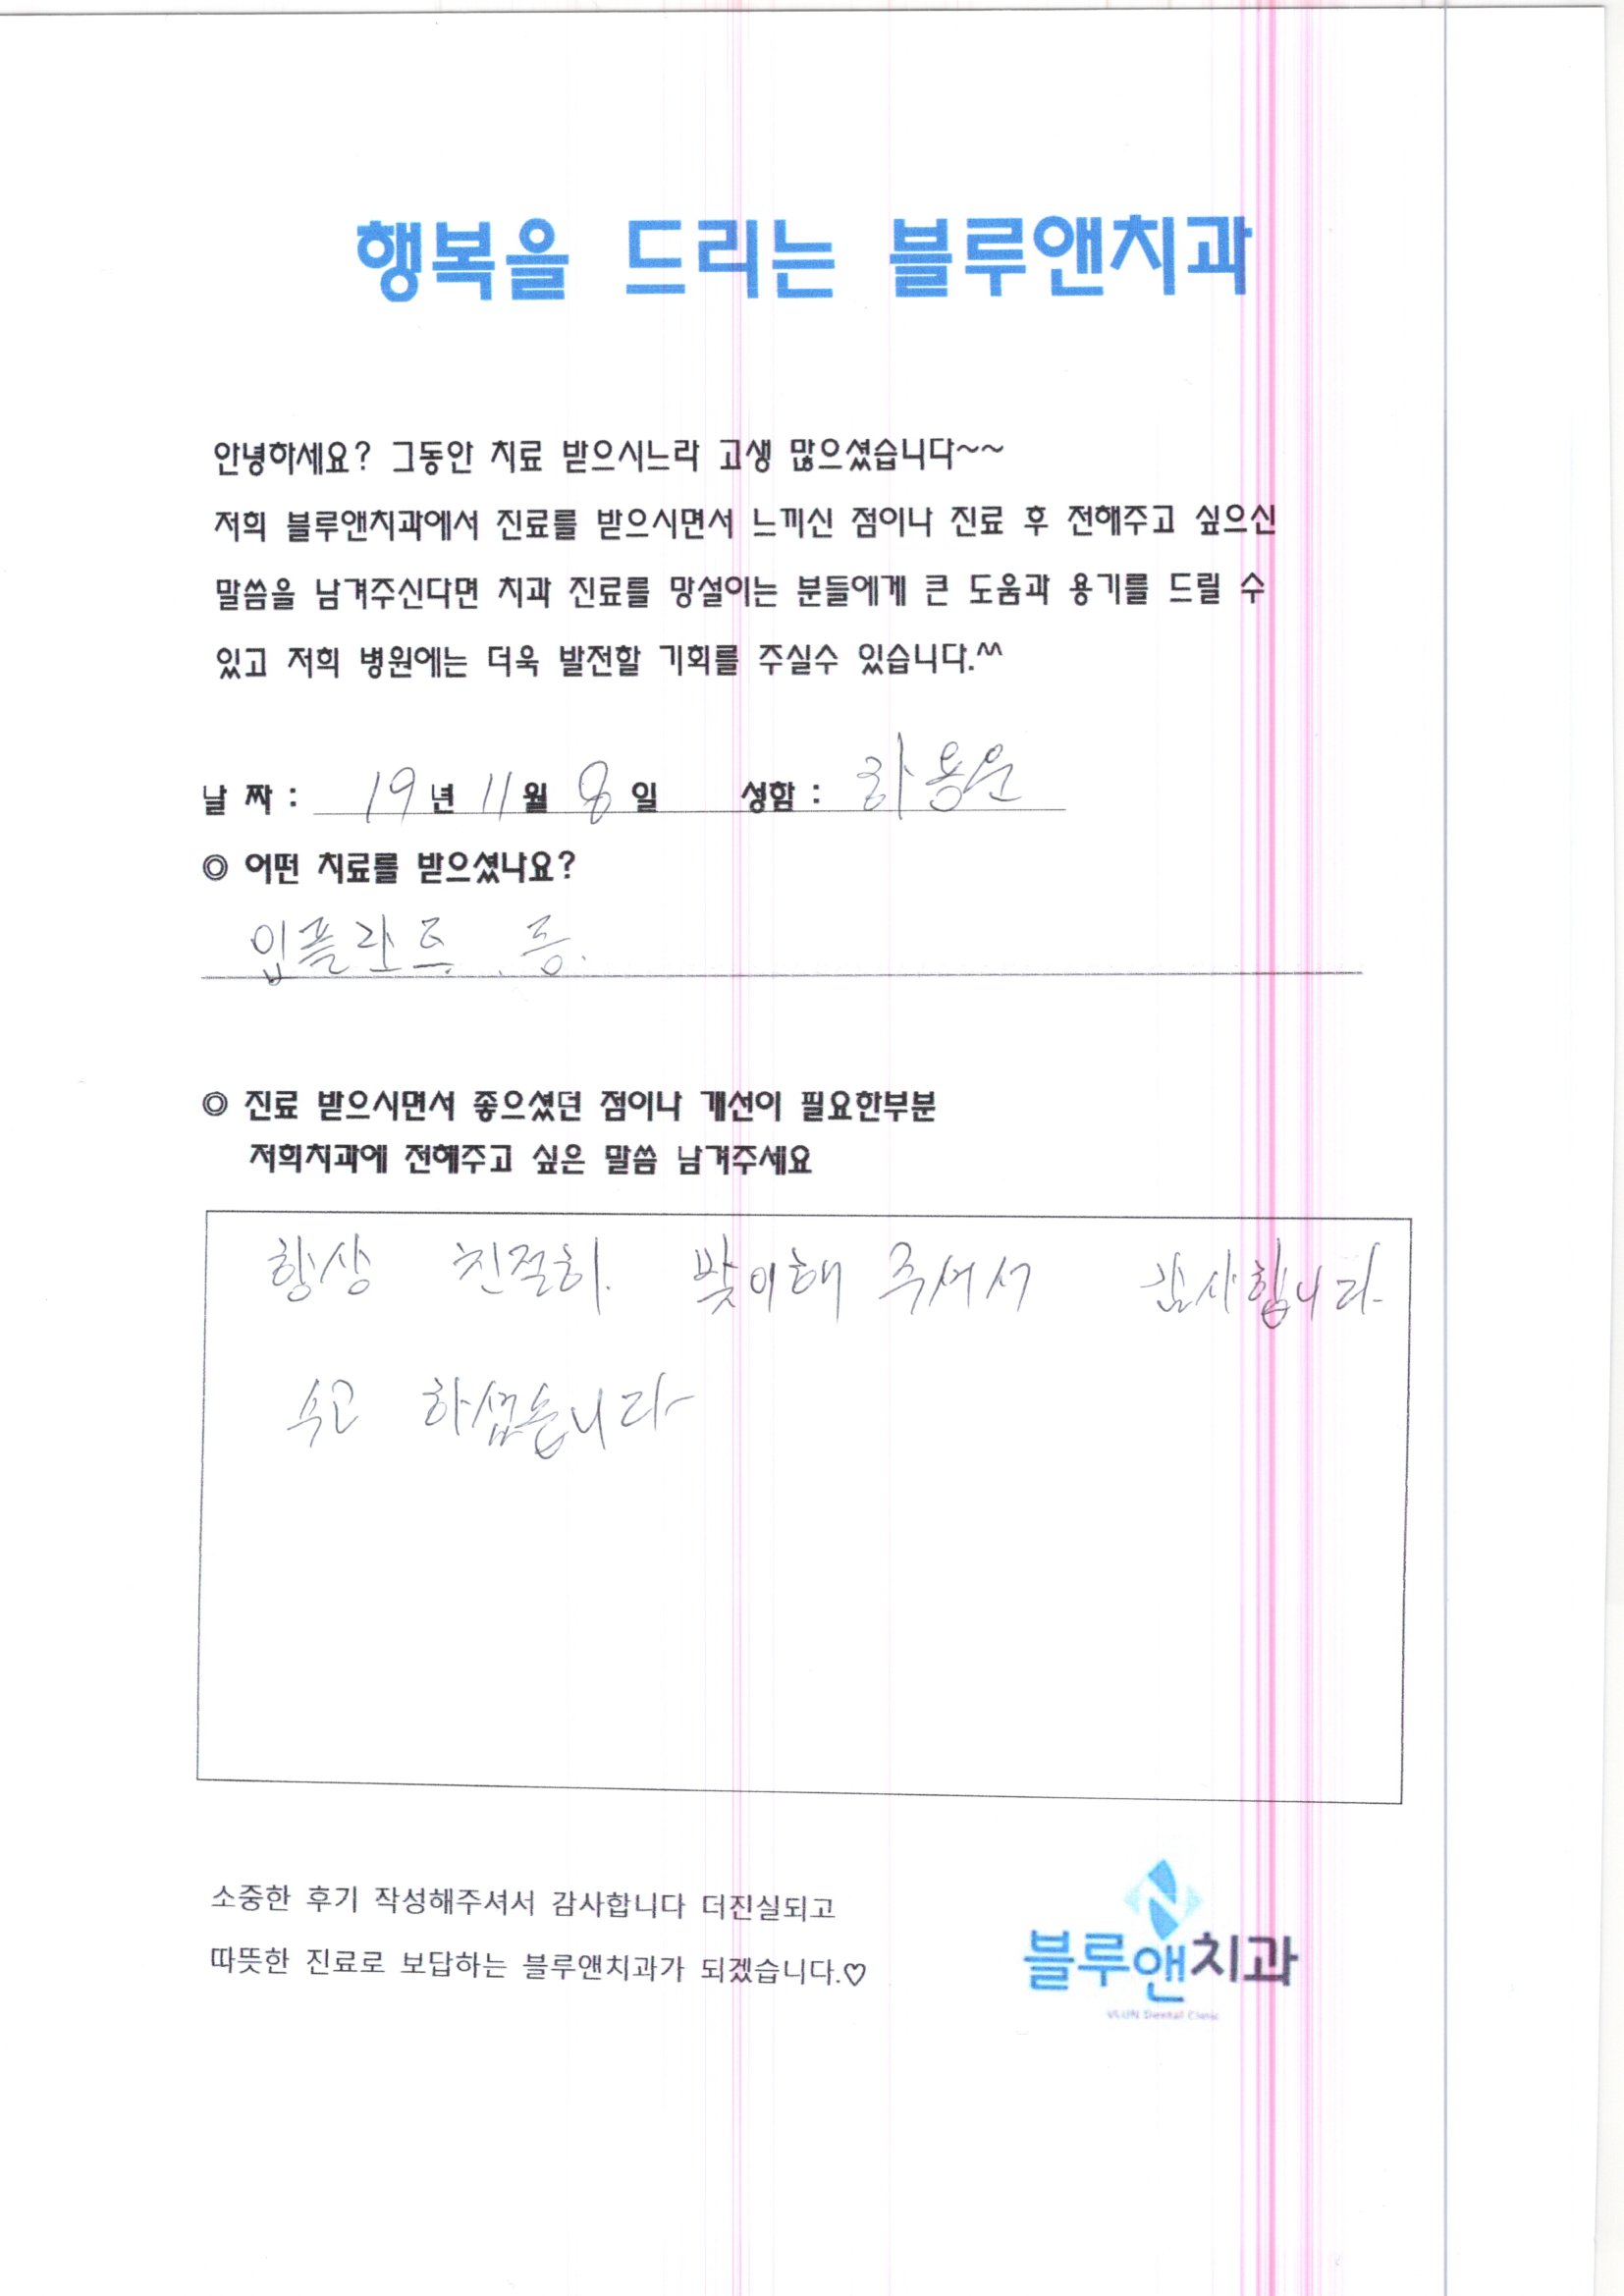 행복을 드리는 블루앤치과
안녕하세요? 그동안 치료 받으시느라 고생 많으셨습니다~~
저희 블루앤치과에서 진료를 받으시면서 느끼신 점이나 진료 후 전해주고 싶으신
말씀을 남겨주신다면 치과 진료를 망설이는 분들에게 큰 도움과 용기를 드릴 수
있고 저희 병원에는 더욱 발전할 기회를 주실수 있습니다.^^
날 짜 : 19년 11월 8일 성함 : 하용운
◎ 어떤 치료를 받으셨나요?
임플란트 등.
◎ 진료 받으시면서 좋으셨던 점이나 개선이 필요한부분
저희치과에 전해주고 싶은 말씀 남겨주세요
항상 친절히. 맞이해 주셔서 감사합니다.
수고 하셨습니다
소중한 후기 작성해주셔서 감사합니다 더진실되고
따뜻한 진료로 보답하는 블루앤치과가 되겠습니다.♡
블루앤치과
VLUN Dental Clinic